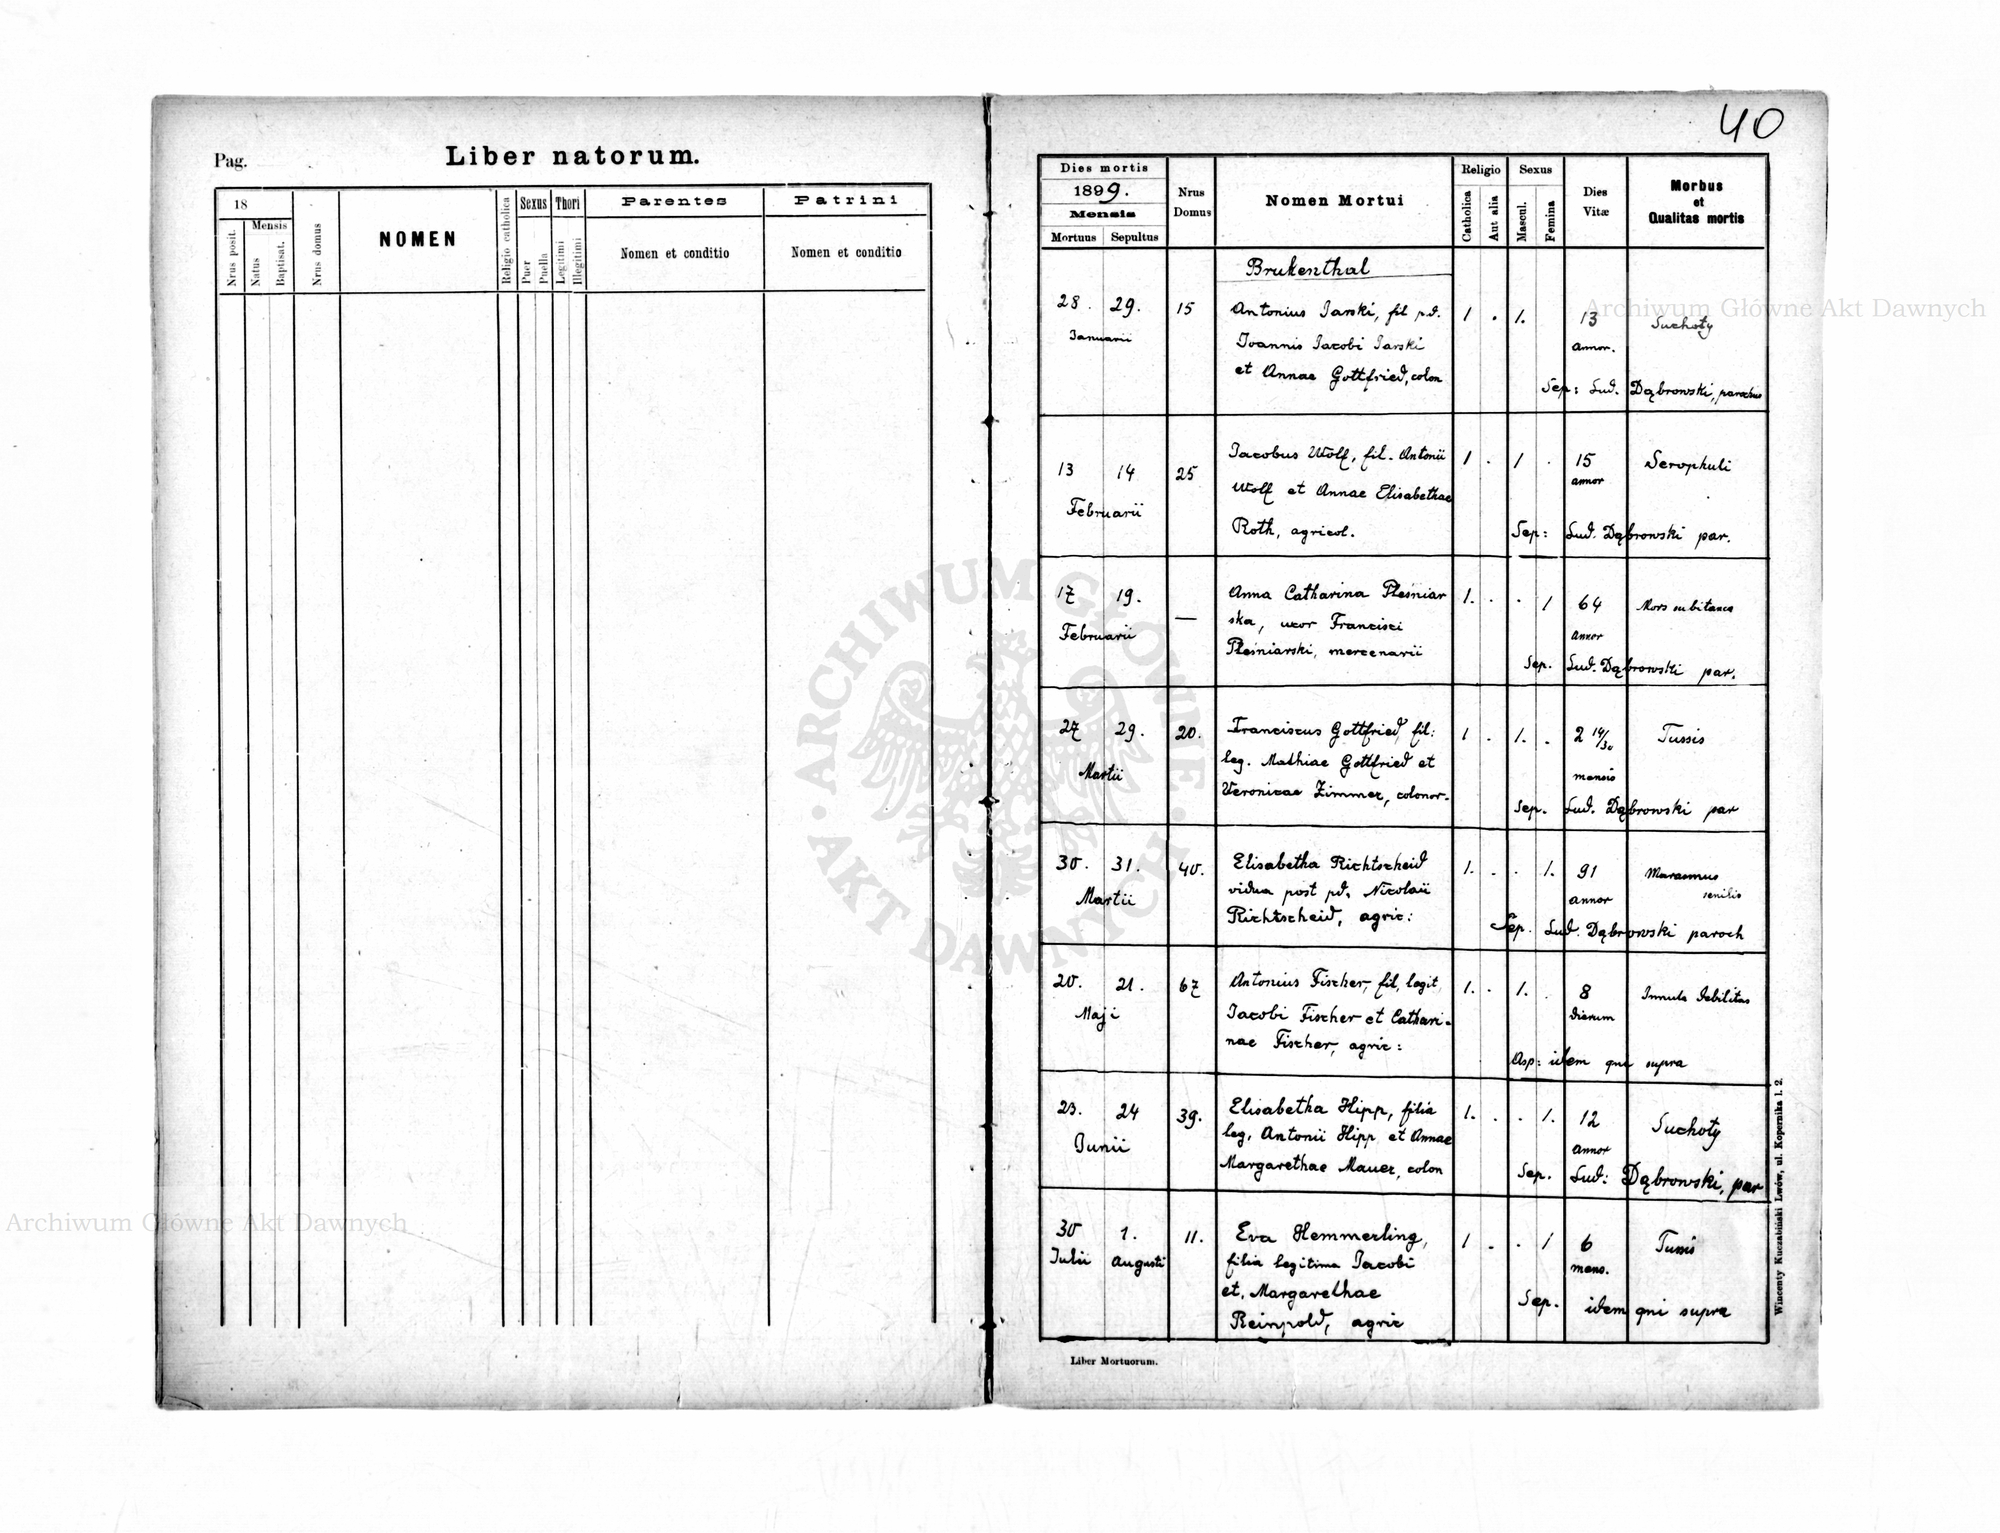 40
Pag.
Liber natorum.
18
Mensis
Nrus posit.
Natus
Baptisat.
Nrus domus
NOMEN
Religio catholica
Sexus
Puer
Puella
Thori
Legitimi
Illegitimi
Parentes
Nomen et conditio
Patrini
Nomen et conditio
Dies mortis
1899.
Mensis
Mortuus Sepultus
Nrus
Domus
Nomen Mortui
Religio
Catholica
Aut alia
Sexus
Mascul.
Femina
Dies
Vitæ
Morbus
et
Qualitas mortis
Brukenthal
28. 29. 15 Antonius Jarski, fil pd. 1 . 1. 13 Suchoty
Januarii Joannis Jacobi Jarski annor.
et Annae Gottfried, colon
Sep: Lud. Dąbrowski, parochus
Jacobus Wolf, fil. Antonii 1 . 1 . 15 Scrophuli
13 14 25 Wolf et Annae Elisabethae annor
Februarii
Roth, agricol. Sep: Lud. Dąbrowski par.
17 19. — Anna Catharina Pleśniar 1. . . 1 64 Mors subitanea
Februarii ska, uxor Francisci annor
Pleśniarski, mercenarii
Sep. Lud. Dąbrowski par.
27 29. 20. Franciscus Gottfried, fil: 1 . 1. . 2 14/30 Tussis
Martii leg. Mathiae Gottfried et mensis
Veronicae Zimmer, colonor.
Sep. Lud. Dąbrowski par
30. 31. 40. Elisabetha Richtscheid 1. . . 1. 91 Marasmus
Martii vidua post pd. Nicolaii annor senilis
Richtscheid, agric:
Sep. Lud. Dąbrowski paroch
20. 21. 67 Antonius Fischer, fil, legit, 1. . 1. . 8 Innata debilitas
Maji Jacobi Fischer et Cathari- dierum
nae Fischer, agric:
Asp: idem qui supra
23. 24 39. Elisabetha Hipp, filia 1. . . 1. 12 Suchoty
Junii leg, Antonii Hipp et Annae annor
Margarethae Mauer, colon Sep. Lud: Dąbrowski, par
30 1. 11. Eva Hemmerling, 1 . . 1 6 Tussis
Julii Augusti filia legitima Jacobi mens.
et, Margarethae
Reinpold, agric Sep. idem qui supra
Liber Mortuorum.
Wincenty Kuczabiński Lwów, ul. Kopernika l. 2.
Archiwum Główne Akt Dawnych
Archiwum Główne Akt Dawnych
ARCHIWUM GŁÓWNE · AKT DAWNYCH ·